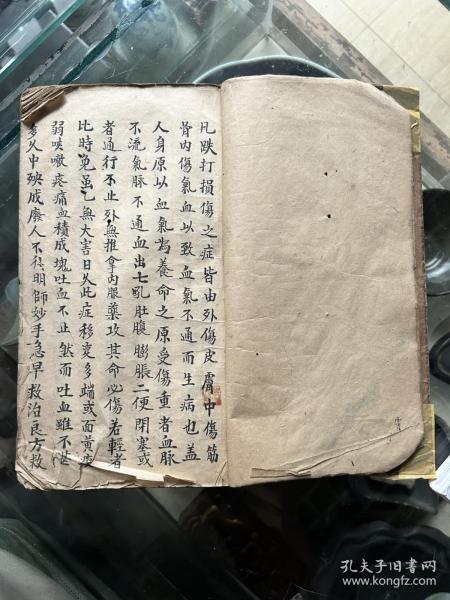 凡跌打損傷之症皆由外傷皮膚中傷筋
骨內傷氣血以致血氣不通而生病也蓋
人身原以血氣為養命之原受傷重者血脉
不流氣脉不通血出七孔肚腹膨脹二便閉塞或
者通行不止外無推拿內服藥攻其命必傷若輕者
比時免虽乙無大害日久此症移变多端或面黄
弱咳嗽疼痛血積成塊吐血不止然而吐血雖不
多久中殃成廢人不得明師妙手急早救治良方救
孔夫子旧书网
www.kongfz.com